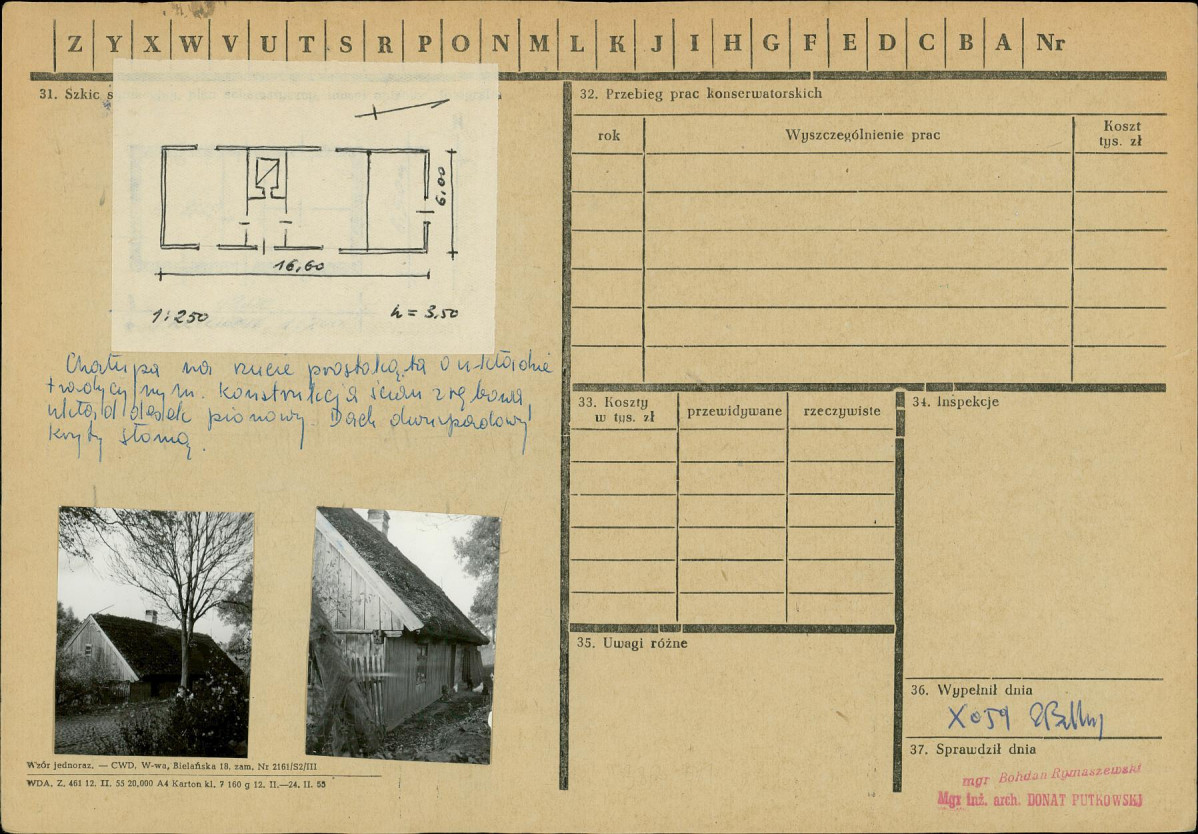 Z Y X W V U T S R P O N M L K J I H G F E D C B A Nr
31. Szkic s
16,60
6,00
1:250
h = 3,50
Chałupa na rzucie prostokąta o układzie
tradycyjnym. Konstrukcja ścian zrębowa,
układ desek pionowy. Dach dwuspadowy
kryty słomą.
Wzór jednoraz. — CWD, W-wa, Bielańska 18, zam. Nr 2161/S2/III
WDA, Z. 461 12. II. 55 20,000 A4 Karton kl. 7 160 g 12. II.—24. II. 55
32. Przebieg prac konserwatorskich
rok
Wyszczególnienie prac
Koszt
tys. zł
33. Koszty
w tys. zł
przewidywane
rzeczywiste
34. Inspekcje
35. Uwagi różne
36. Wypełnił dnia
X 059
37. Sprawdził dnia
mgr Bohdan Rymaszewski
Mgr inż. arch. DONAT PUTKOWSKI